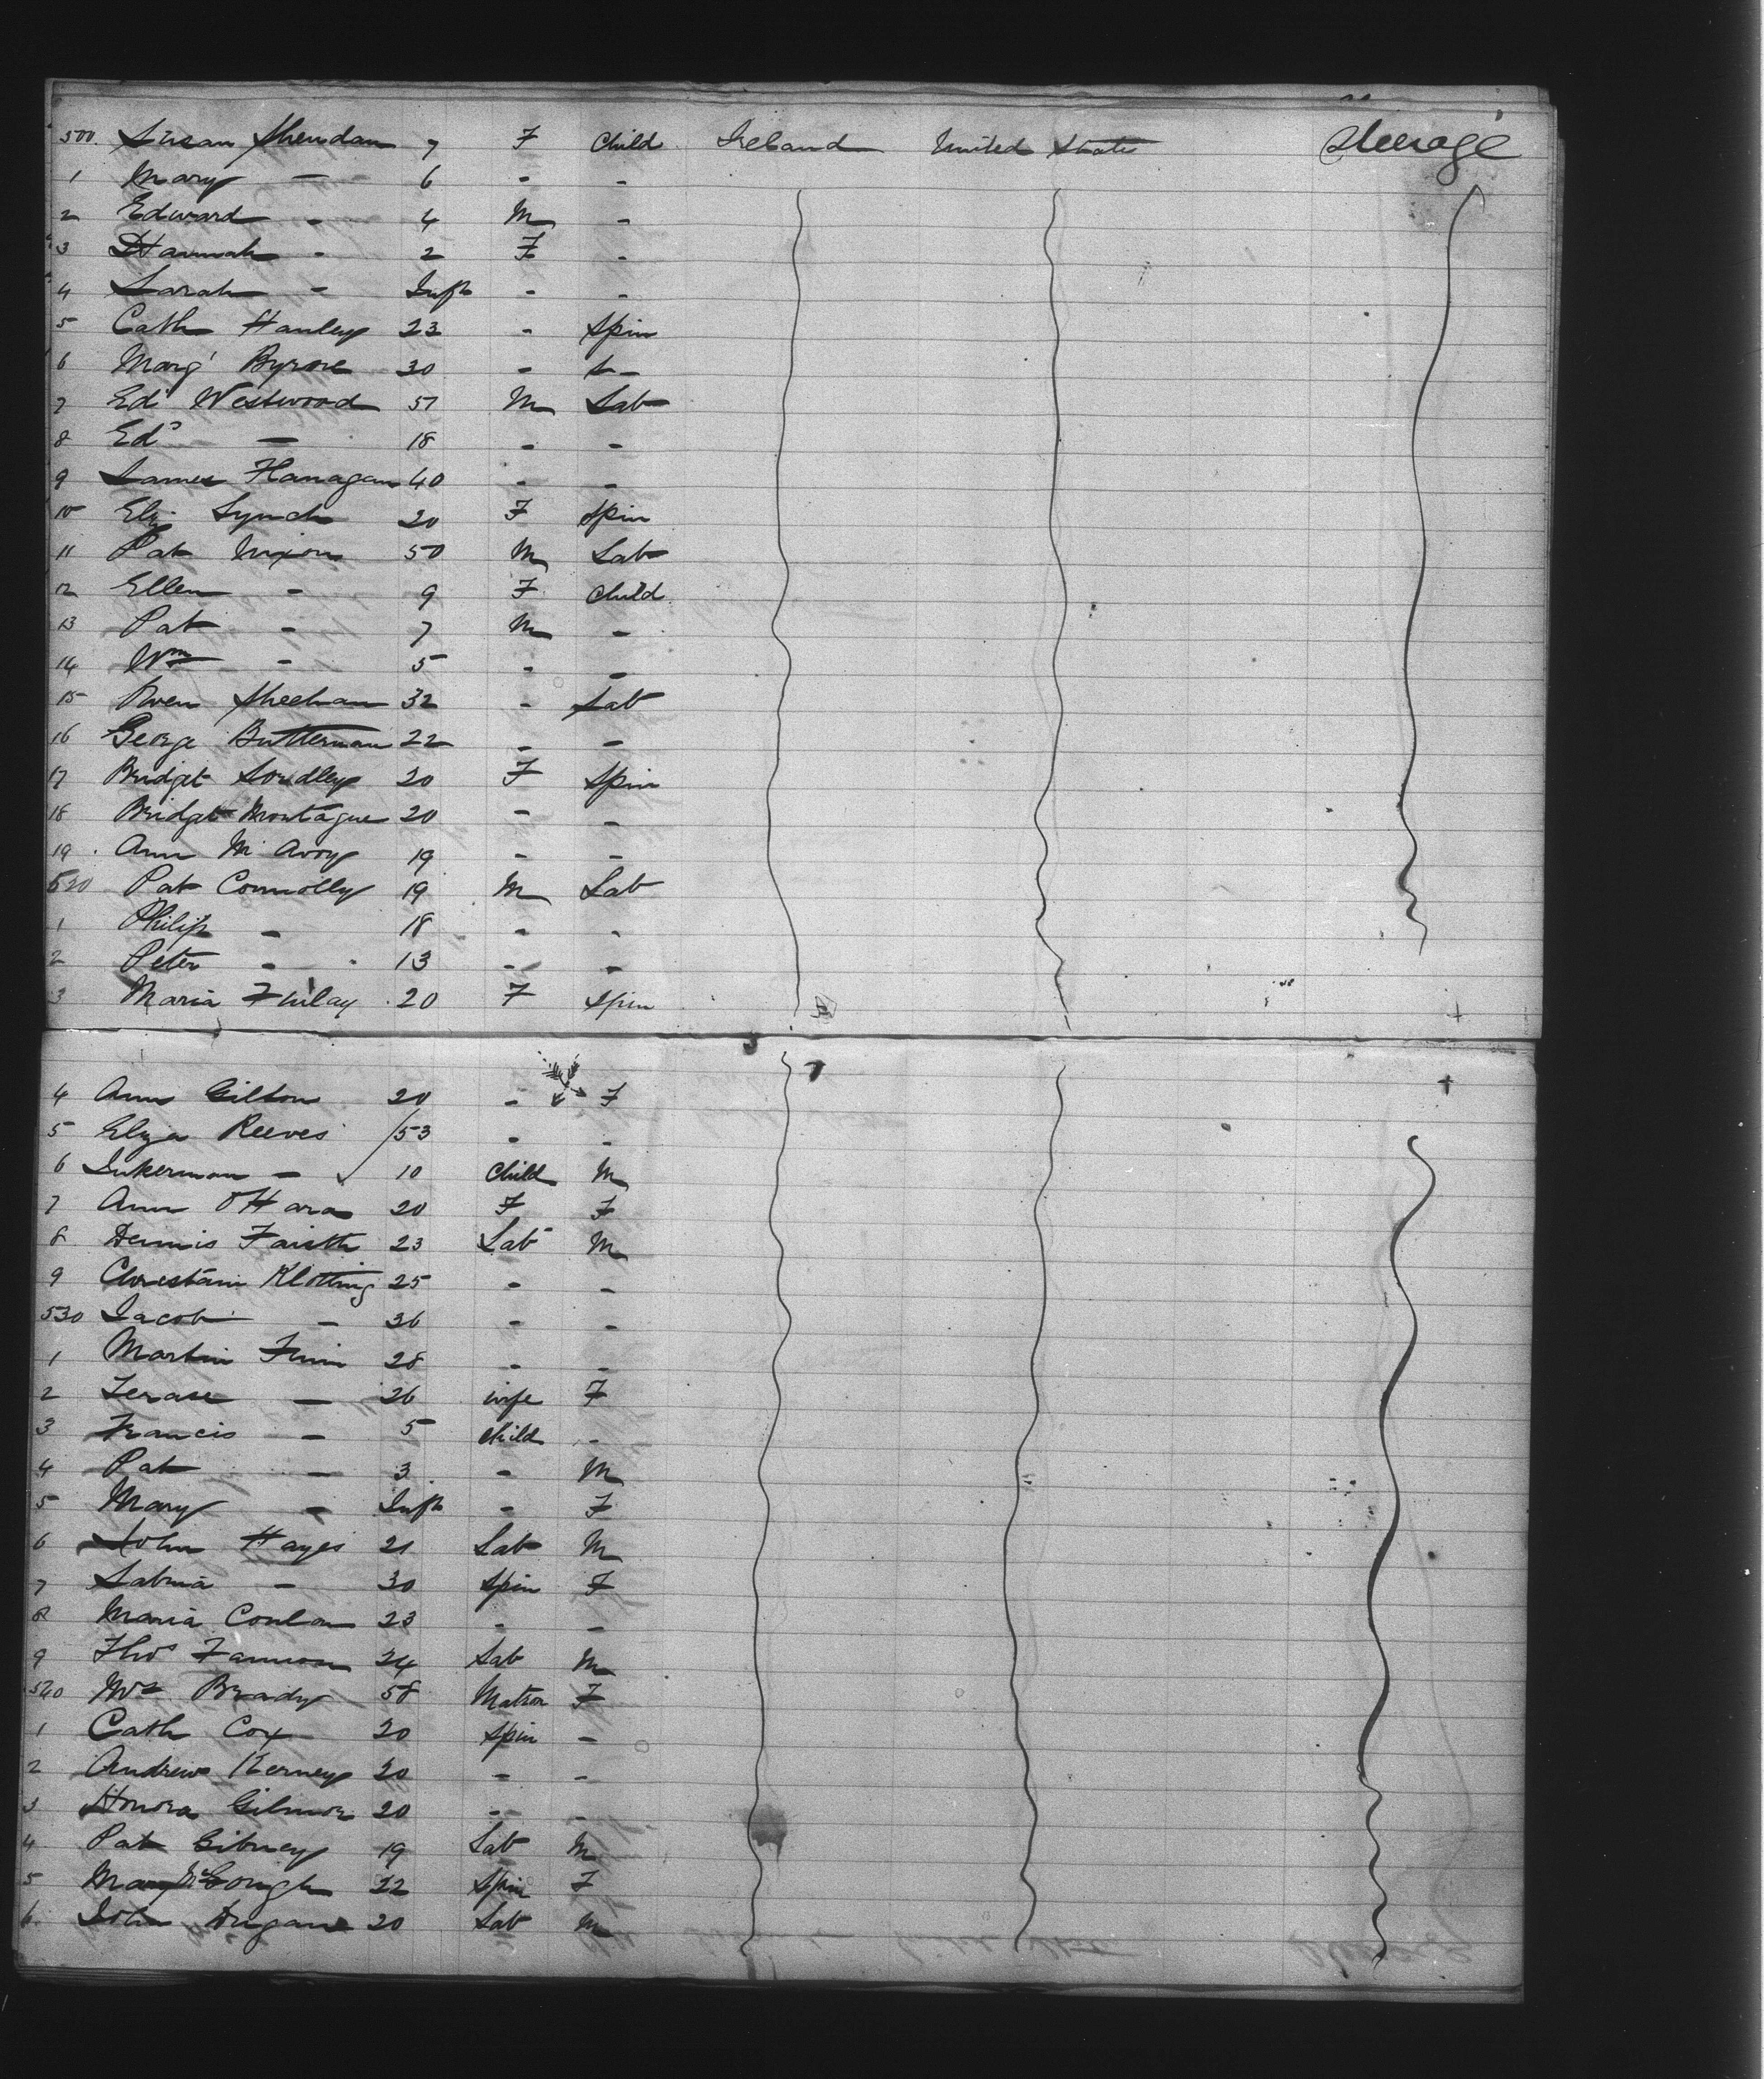 500. Susan Sheridan 7 F Child Ireland United States Steerage
1 Mary — 6 - -
2 Edward - 4 M -
3 Hannah - 2 F -
4 Sarah - Inft - -
5 Cath Hanley 23 - Spin
6 Marg' Byrne 30 - -
7 Ed Westwood 51 M Lab
8 Edd — 18 - -
9 James Flanagan 40 - -
10 Eliz Lynch 20 F Spin
11 Pat Nixon 50 M Lab
12 Ellen - 9 F Child
13 Pat - 7 M -
14 Wm - 5 - -
15 Owen Sheehan 32 - Lab
16 George Butterman 22 - -
17 Bridget Sordley 20 F Spin
18 Bridget Montague 20 - -
19 Ann Mc Avoy 19 - -
520 Pat Connolly 19 M Lab
1 Philip - 18 - -
2 Peter - 13 - -
3 Maria Finlay 20 F Spin
4 Ann Gilson 20 - F
5 Eliza Reeves 53 - -
6 Inkerman - 10 Child M
7 Ann O'Hara 20 F F
8 Dennis 23 Lab M
9 Christain Klotting 25 - -
530 Jacob - 36 - -
1 Martin 28 - -
2 — 26 wife F
3 Francis - 5 Child -
4 Pat - 3 - M
5 Mary - Inft - F
6 John Hayes 21 Lab M
7 Sabina - 30 Spin F
8 Maria Conlon 23 - -
9 Thos Fannon 24 Lab M
540 Mrs Brady 58 Matron F
1 Cath Cox 20 Spin -
2 Andrew Kerney 20 - -
3 Honora Gilmor 20 - -
4 Pat Gibney 19 Lab M
5 Mary McGough 22 Spin F
6 John Dugan 20 Lab M